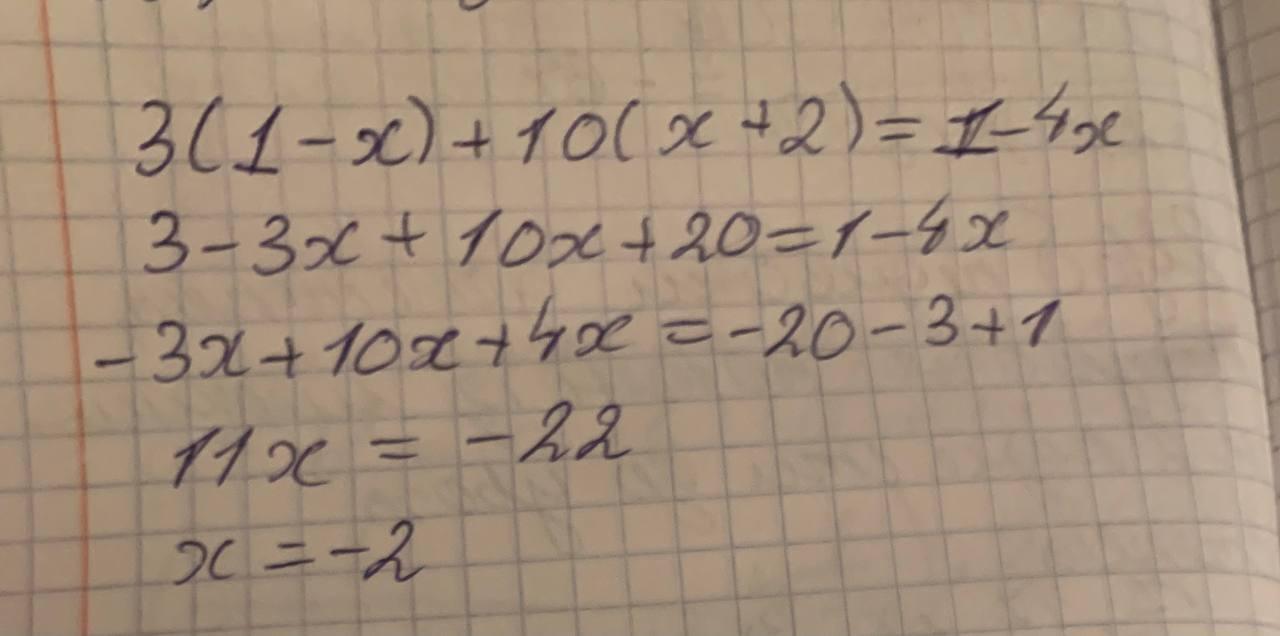 3(1-x)+10(x+2)=1-4x
3-3x+10x+20=1-4x
-3x+10x+4x=-20-3+1
11x=-22
x=-2